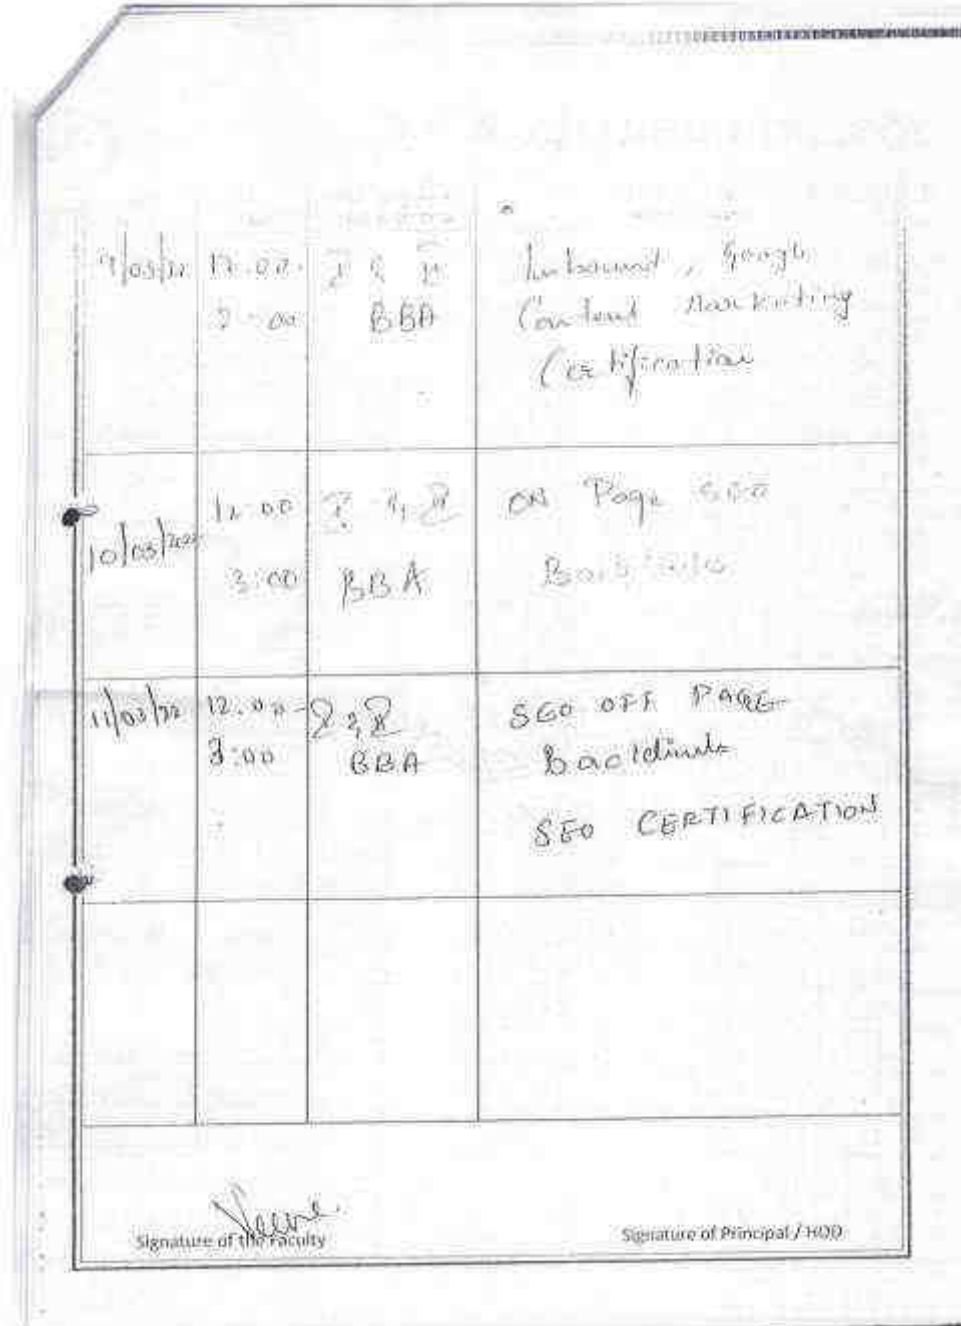 12.00-
2-00
BBA
Inbound, Google
Content Marketing
Certification
10/03/2022
12.00
3:00
BBA
ON Page SEO
11/03/22
12.00-
3:00
BBA
SEO OFF PAGE
SEO CERTIFICATION
Signature of the Faculty
Signature of Principal / HOD